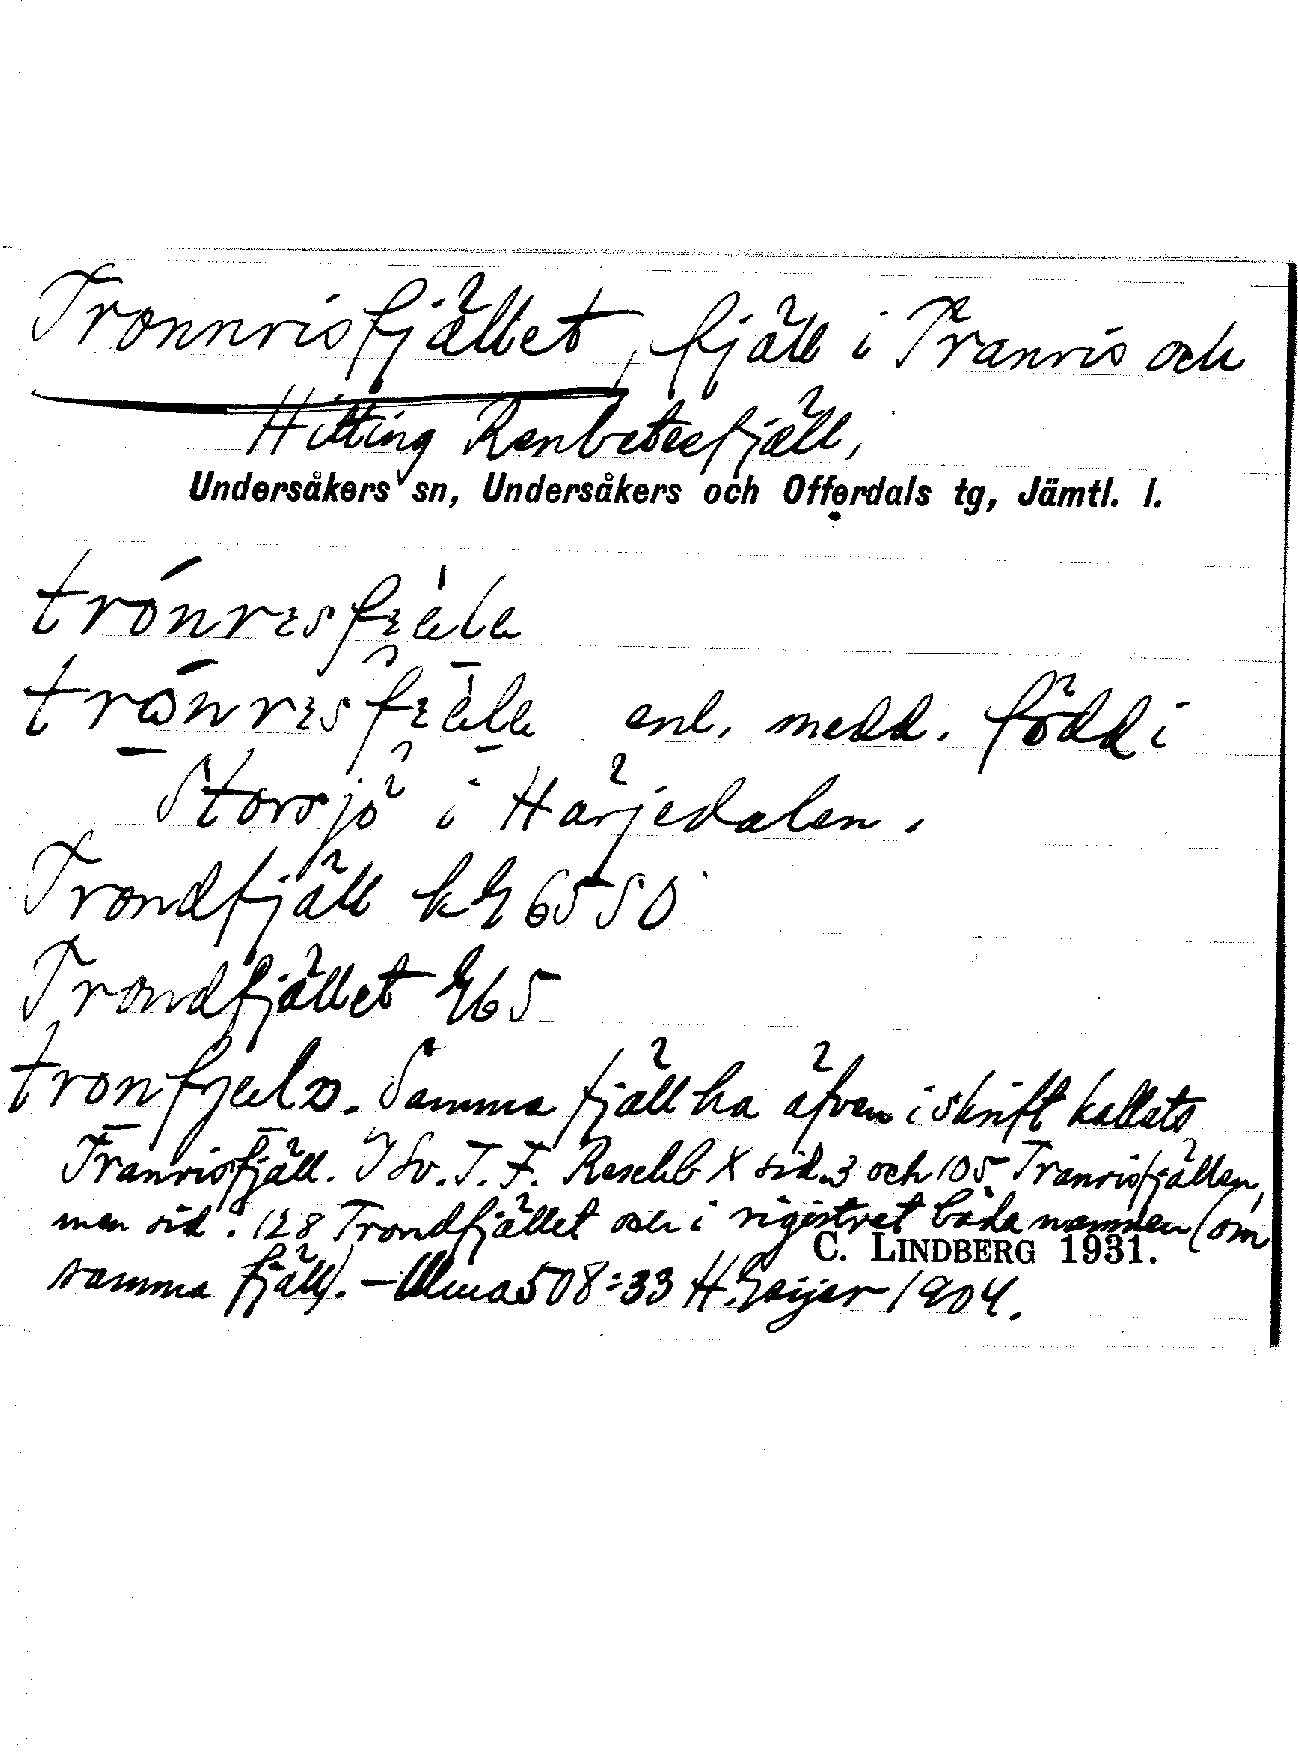 Tronnrisfjället, fjäll i Tranris och
Hitting Renbetesfjäll,
Undersåkers sn, Undersåkers och Offerdals tg, Jämtl. l.
enl. medd. född i
Storsjö i Härjedalen.
Trondfjäll 65 SO
Trondfjället 65
tronfjælɒ. Samma fjäll ha äfven i skrift kallats
Tranrisfjäll. I Sv. T. F. Reseh b X sid. 3 och 105 Tranrisfjällen,
men sid. 128 Trondfjället och i registret båda namnen (om
C. LINDBERG 1931.
samma fjäll). – Ulma 508:33 H. Geijer 1904.